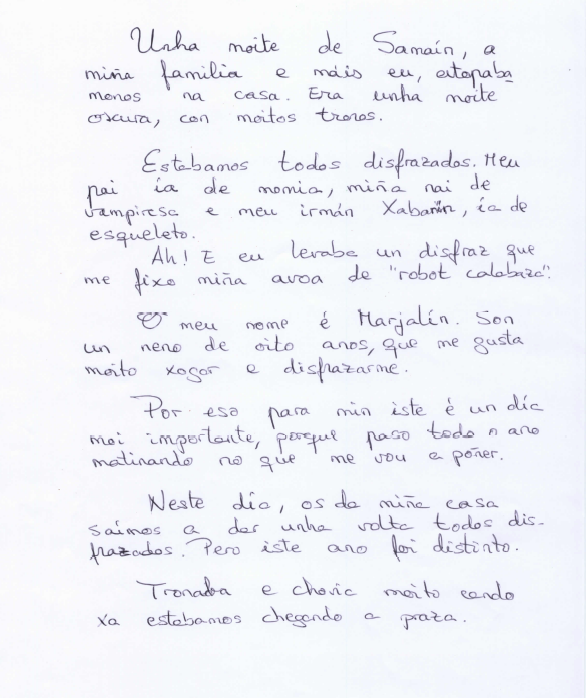 Unha noite de Samaín, a
miña familia e máis eu, estopaba
monos na casa. Era unha noite
oscura, con moitos tronos.
Estabamos todos disfrazados. Meu
pai ía de momia, miña nai de
vampiresa e meu irmán Xabarín, ía de
esqueleto.
Ah! E eu levaba un disfraz que
me fixo miña avoa de "robot calabaza".
O meu nome é Marjalín. Son
un neno de oito anos, que me gusta
moito xogar e disfrazarme.
Por eso para min iste é un día
moi importante, porque paso todo o ano
matinando no que me vou a poñer.
Neste día, os da miña casa
saímos a dar unha volta todos dis-
frazados. Pero iste ano foi distinto.
Tronaba e chovía moito cando
xa estabamos chegando a praza.